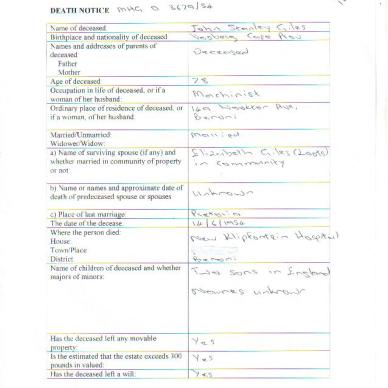 DEATH NOTICE MHG O 3679/54
Name of deceased John Stanley Giles
Birthplace and nationality of deceased Cape
Names and addresses of parents of deceased Deceased
Father
Mother
Age of deceased 78
Occupation in life of deceased, or if a Machinist
woman of her husband:
Ordinary place of residence of deceased, or 169 Ave,
if a woman, of her husband: Benoni
Married/Unmarried: Married
Widower/Widow:
a) Name of surviving spouse (if any) and Elizabeth Giles (Loots)
whether married in community of property in Community
or not:
b) Name or names and approximate date of Unknown
death of predeceased spouse or spouses
c) Place of last marriage: Pretoria
The date of the decease: 14/6/1954
Where the person died: New Klipfontein Hospital
House:
Town/Place
District Benoni
Name of children of deceased and whether Two sons in England
majors of minors: Names unknown
Has the deceased left any movable Yes
property:
Is the estimated that the estate exceeds 300 Yes
pounds in valued:
Has the deceased left a will: Yes